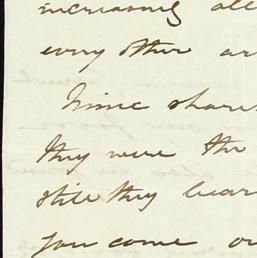 increasing all
every other ar
Mimie share
they were the
still they bear
you come or